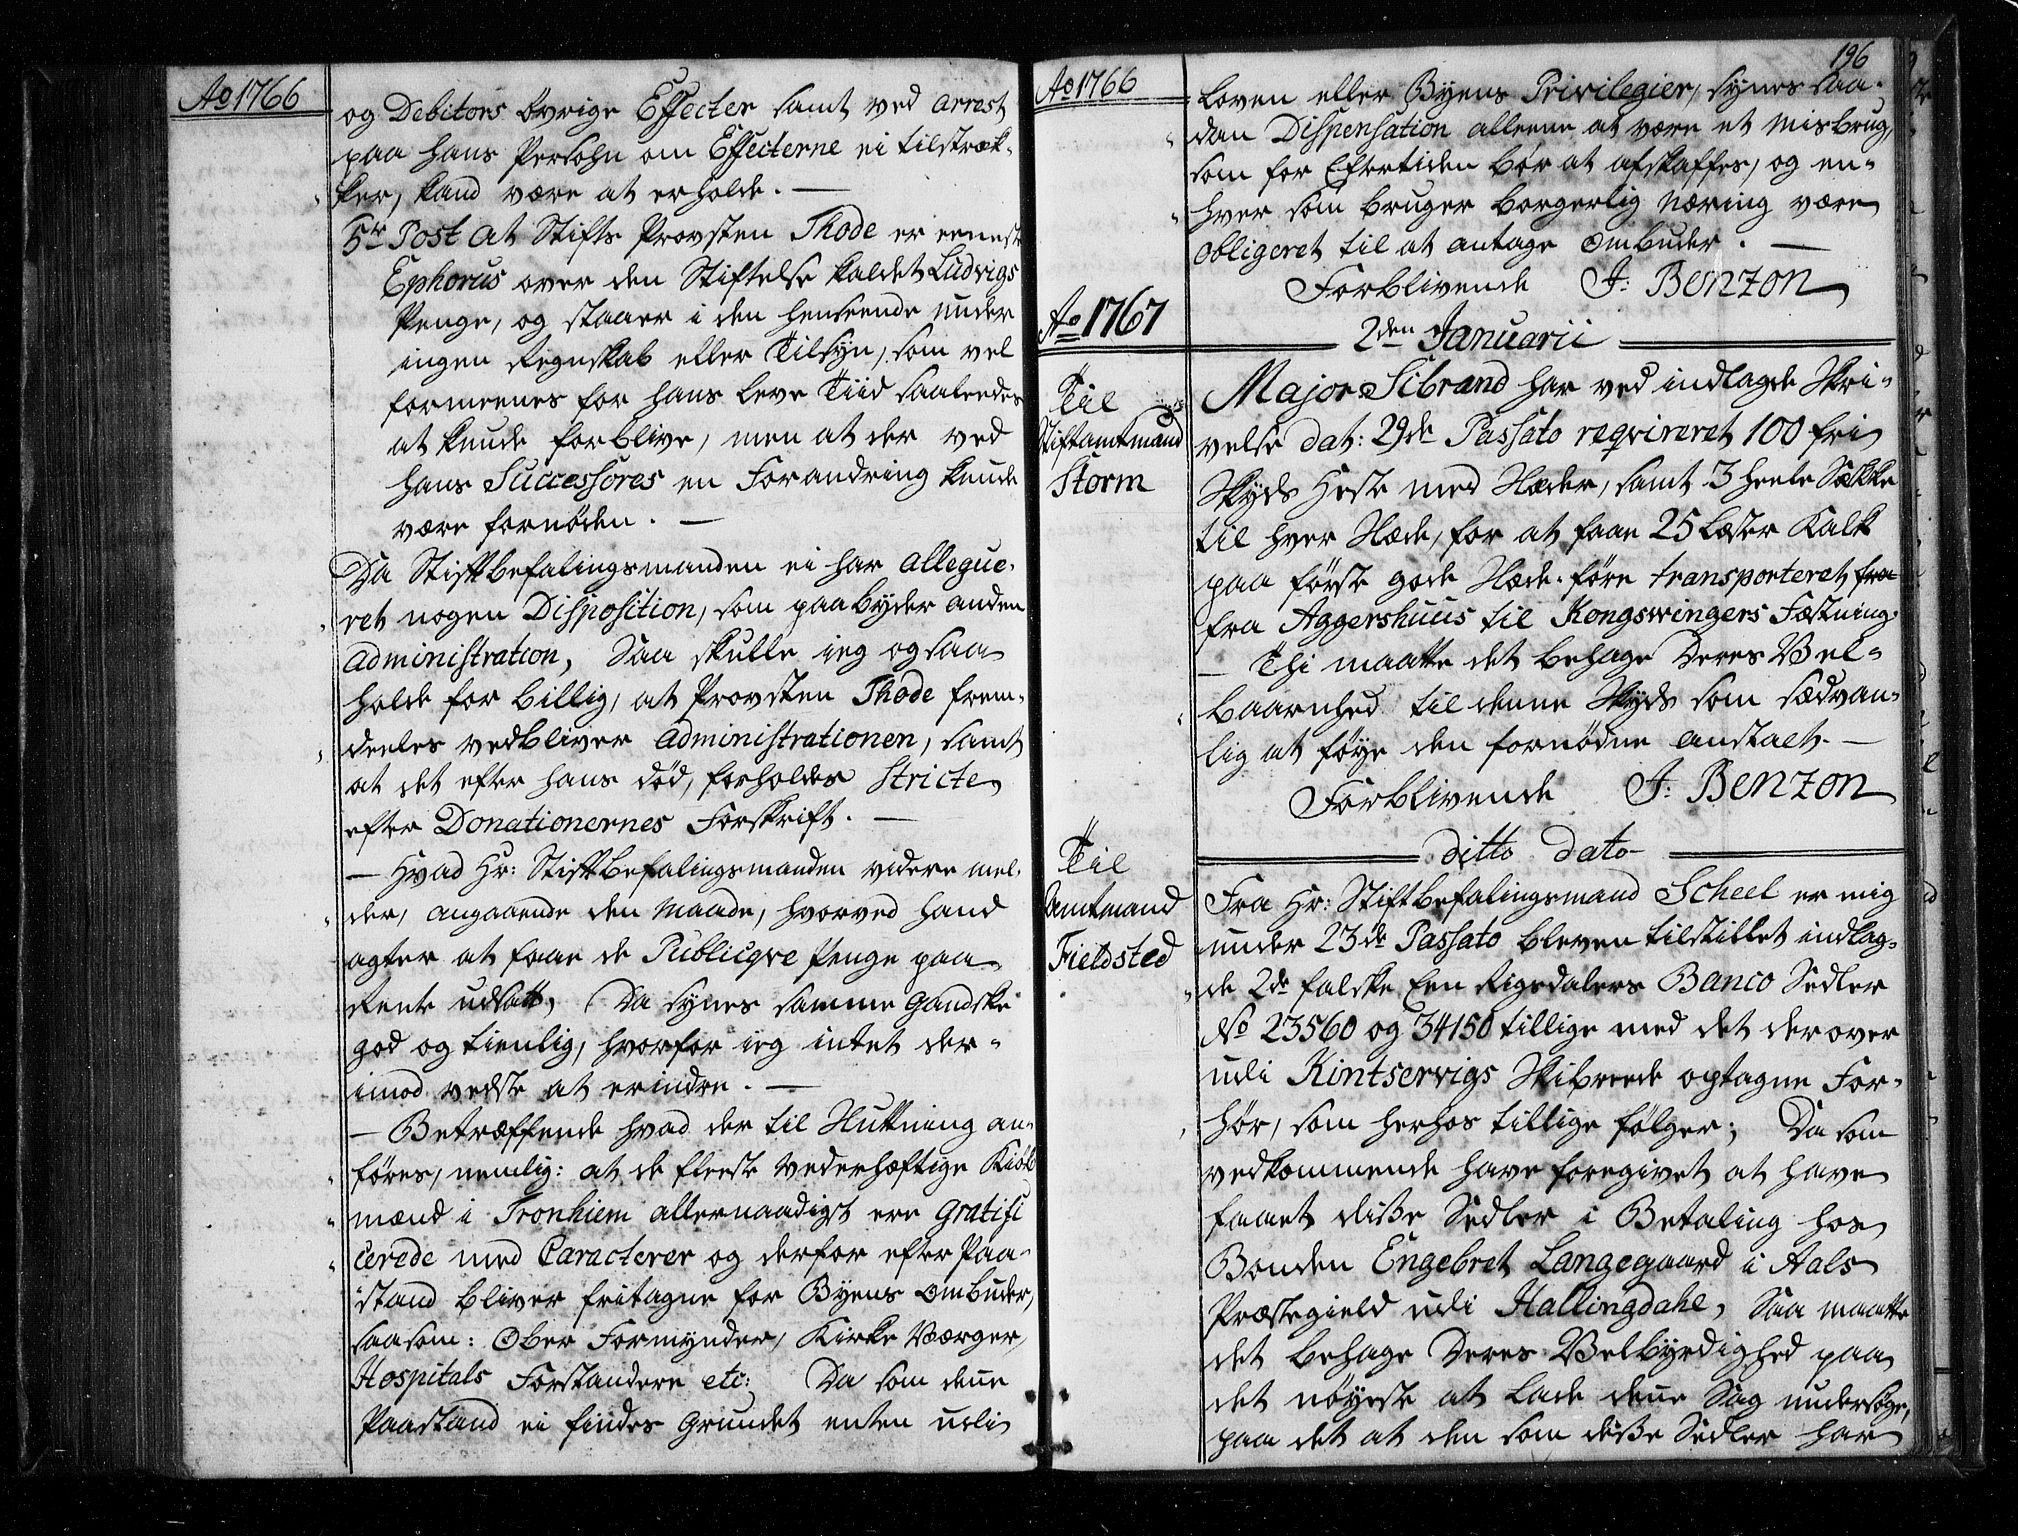 Ao 1766
og Debitors övrige Effecter samt ved arrest
paa hans Persohn om Effecterne ei tilstræk-
ker, kand være at erholde. —
5te Post at Stifts Provsten Thode er eeneste
Ephorus over den Stiftelse kaldet Ludvigs
Penge, og staaer i den henseende under
ingen Regnskab eller Tilsyn, som vel
formeenes for hans leve Tiid saaleedes
at kunde forblive, men at der ved
hans Successores en Forandring kunde
være fornöden. —
Da Stiftbefalingsmanden ei har allegue-
ret nogen Disposition, som paabyder anden
administration, Saa skulle ieg ogsaa
holde for billig, at Provsten Thode frem-
deeles vedbliver administrationen, samt
at det efter hans död, forholdes Stricte
efter Donationernes Forskrift. —
— Hvad Hr: Stiftbefalingsmanden videre mel-
der, angaaende den Maade, hvorved hand
agter at faae de Publicqve Penge paa
Rente udsatt, Da synes samme gandske
god og tienlig, hvorfor ieg intet der-
imod vedste at erindre. —
— Betræffende hvad der til Slutning an-
föres, nemlig: at de fleeste vederhæftige Kiöb
mænd i Tronhiem allernaadigst ere gratifi
cerede med Caracterer og derfor efter Paa-
stand bliver fritagne for Byens Ombuder,
saasom: Ober Formynder, Kirke Værger,
Hospitals Forstandere etc: Da som denne
Paastand ei findes grundet enten udi
196
Ao 1766
Loven eller Byens Privilegier, synes saa-
dan Dispensation alleene at være et Misbrug,
som for Eftertiden bör at afskaffes, og en-
hver som bruger borgerlig Næring være
obligeret til at antage Ombuder. —
Forblivende J: Benzon
Ao 1767
2den Januarii
Til
Stiftamtmand
Storm
Major Sibrand har ved indlagde Skri-
velse dat: 29de Passato reqvireret 100 fri
Skyds Heste med Slæder, samt 3 heele Sække
til hver Slæde, for at faae 25 Læster Kalk
paa förste gode Slæde-före transporteret fra
fra Aggershuus til Kongswingers Fæstning
— Thi maatte det behage Deres Vel-
baarnhed til denne Skyds som sædvan-
lig at föye den fornödne anstalt. —
Forblivende J: Benzon
ditto dato
Til
Amtmand
Fieldsted
Fra Hr: Stiftbefalingsmand Scheel er mig
under 23de Passato bleven tilstillet indlag-
de 2de falske Een Rigsdalers Banco Sedler
No 23560 og 34150 tillige med det derover
udi Kintservigs Skibreede optagne For-
hör, som herhos tillige fölger; Da som
vedkommende have foregivet at have
faaet disse Sedler i Betaling hos
Bonden Engebret Langegaard i Aals
Præstegield udi Hallingdahl, Saa maatte
det behage Deres Velbyrdighed paa
det nöyeste at lade denne Sag undersöge,
paa det at den som disse Sedler har